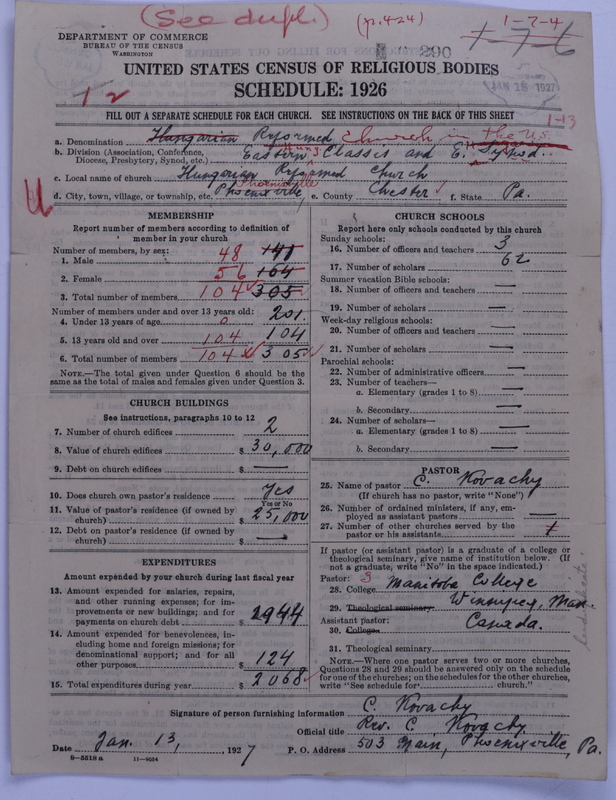 (See dupl.) (yr. 4-24) 1-7-4
DEPARTMENT OF COMMERCE
BUREAU OF THE CENSUS
WASHINGTON
290 1-7-6
JAN 18 1927
UNITED STATES CENSUS OF RELIGIOUS BODIES
SCHEDULE: 1926
1 2
FILL OUT A SEPARATE SCHEDULE FOR EACH CHURCH. SEE INSTRUCTIONS ON THE BACK OF THIS SHEET
1-13
a. Denomination Hungarian Reformed Church in the U.S.
b. Division (Association, Conference, Diocese, Presbytery, Synod, etc.) Eastern Hung. Classis and E. Synod
c. Local name of church Hungarian Reformed Church
d. City, town, village, or township, etc. Phoenixville Phoenixville e. County Chester f. State Pa.
MEMBERSHIP
Report number of members according to definition of
member in your church
Number of members, by sex:
1. Male 48 141
2. Female 56 164
3. Total number of members 104 305
Number of members under and over 13 years old:
4. Under 13 years of age 0 201
5. 13 years old and over 104 104
6. Total number of members 104 305
NOTE.—The total given under Question 6 should be
same as the total of males and females given under Question 3.
CHURCH BUILDINGS
See instructions, paragraphs 10 to 12
7. Number of church edifices 2
8. Value of church edifices $ 30,000
9. Debt on church edifices $ —
10. Does church own pastor's residence Yes
Yes or No
11. Value of pastor's residence (if owned by
church) $ 25,000
12. Debt on pastor's residence (if owned by
church) $ —
EXPENDITURES
Amount expended by your church during last fiscal year
13. Amount expended for salaries, repairs,
and other running expenses; for im-
provements or new buildings; and for
payments on church debt $ 1944
14. Amount expended for benevolences, in-
cluding home and foreign missions; for
denominational support; and for all
other purposes $ 124
15. Total expenditures during year $ 2068
CHURCH SCHOOLS
Report here only schools conducted by this church
Sunday schools:
16. Number of officers and teachers 3
17. Number of scholars 62
Summer vacation Bible schools:
18. Number of officers and teachers —
19. Number of scholars —
Week-day religious schools:
20. Number of officers and teachers —
21. Number of scholars —
Parochial schools:
22. Number of administrative officers —
23. Number of teachers—
a. Elementary (grades 1 to 8) —
b. Secondary —
24. Number of scholars—
a. Elementary (grades 1 to 8) —
b. Secondary —
PASTOR
25. Name of pastor C. Kovachy
(If church has no pastor, write "None")
26. Number of ordained ministers, if any, em-
ployed as assistant pastors —
27. Number of other churches served by the
pastor or his assistants
If pastor (or assistant pastor) is a graduate of a college or
theological seminary, give name of institution below. (If
not a graduate, write "No" in the space indicated.)
Pastor: 3
28. College Manitoba College
29. Theological seminary Winnipeg, Man.
Assistant pastor: Canada.
30. College
31. Theological seminary
NOTE.—Where one pastor serves two or more churches,
Questions 28 and 29 should be answered only on the schedule
for one of the churches; on the schedules for the other churches,
write "See schedule for church."
Signature of person furnishing information C. Kovachy
Official title Rev. C. Kovachy
Date Jan. 13, 1927 P. O. Address 503 Main, Phoenixville, Pa.
8-5518 a 11-9054